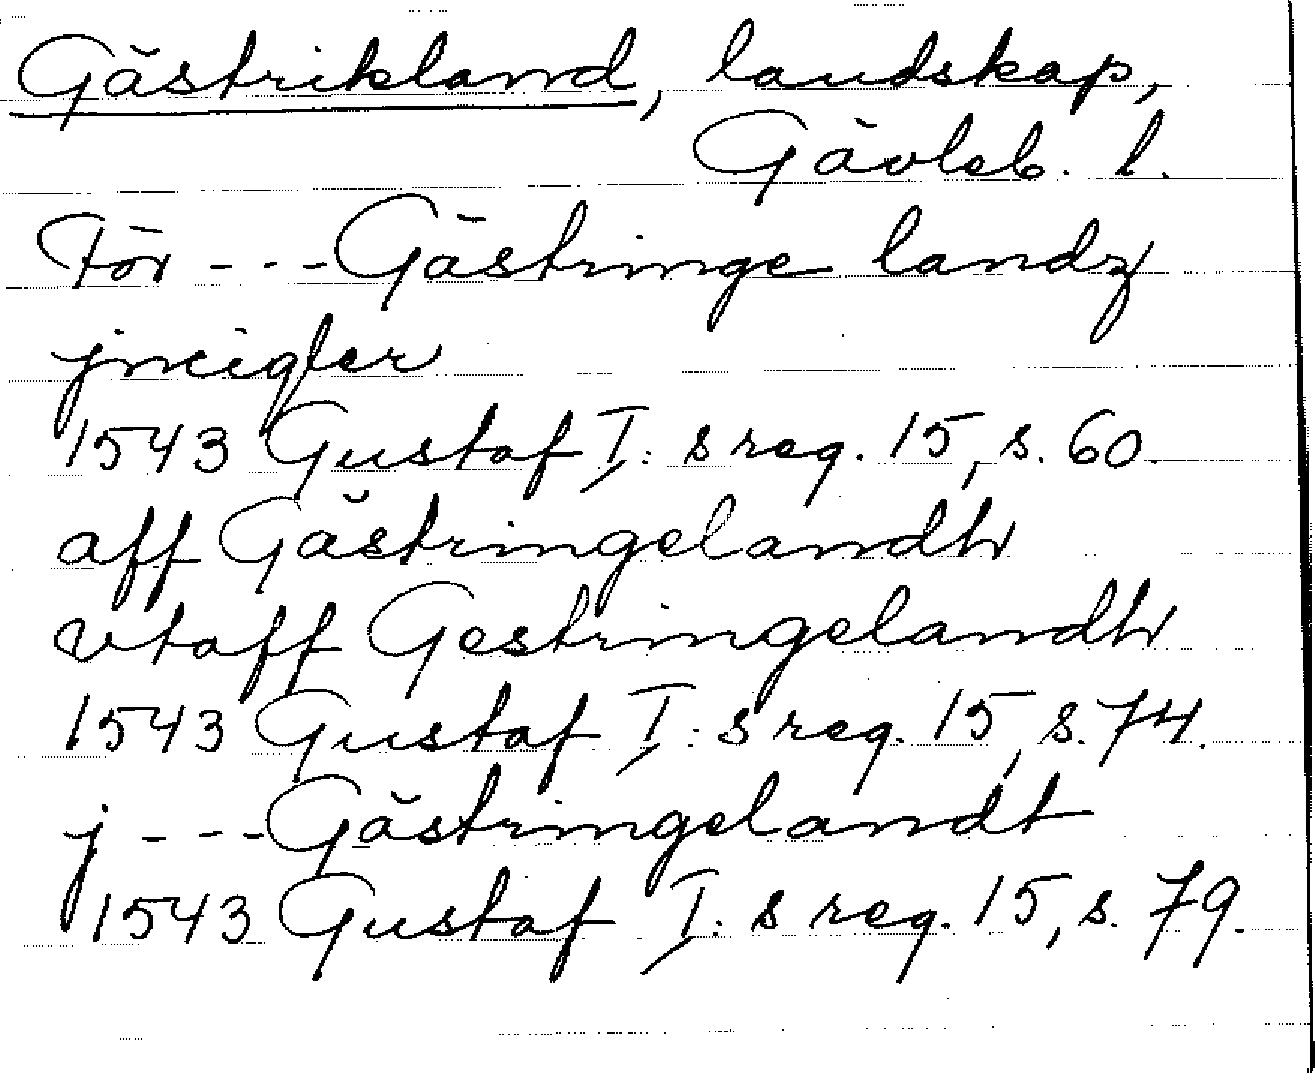 Gästrikland, landskap,
Gävleb. l.
För - - - Gästringe landz
jncigler
1543 Gustaf I: s reg. 15, s. 60.
aff Gästringelandh
vtaff Gestringelandh
1543 Gustaf I: s reg. 15, s. 74.
j - - - Gästringelandt
1543 Gustaf I: s reg. 15, s. 79.